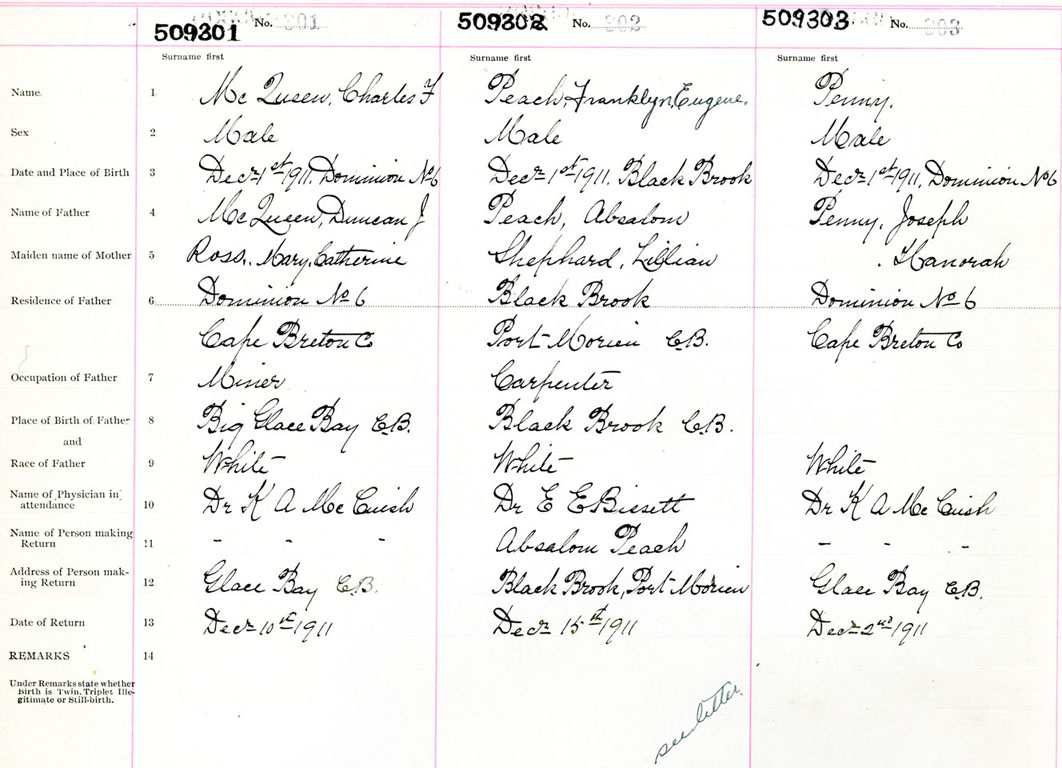 509301 No. 301 509302 No. 302 509303 No. 303
Surname first Surname first Surname first
Name 1 Mc Queen, Charles F Peach, Franklyn, Eugene. Penny.
Sex 2 Male Male Male
Date and Place of Birth 3 Decr 1st 1911. Dominion No 6 Decr 1st 1911. Black Brook Decr 1st 1911, Dominion No 6
Name of Father 4 Mc Queen, Duncan J Peach, Absalom Penny, Joseph
Maiden name of Mother 5 Ross, Mary, Catherine Shephard, Lillian , Hanorah
Residence of Father 6 Dominion No 6 Black Brook Dominion No 6
Cape Breton Co Port Morien C.B. Cape Breton Co
Occupation of Father 7 Miner Carpenter
Place of Birth of Father 8 Big Glace Bay C.B. Black Brook C.B.
and
Race of Father 9 White White White
Name of Physician in
attendance 10 Dr K A Mc Cuish Dr E E Bissett Dr K A Mc Cuish
Name of Person making
Return 11 - - - Absalom Peach - - -
Address of Person mak-
ing Return 12 Glace Bay C.B. Black Brook, Port Morien Glace Bay C.B.
Date of Return 13 Decr 10th 1911 Decr 15th 1911 Decr 2nd 1911
REMARKS 14
Under Remarks state whether
Birth is Twin, Triplet Ille-
gitimate or Still-birth.
see letter